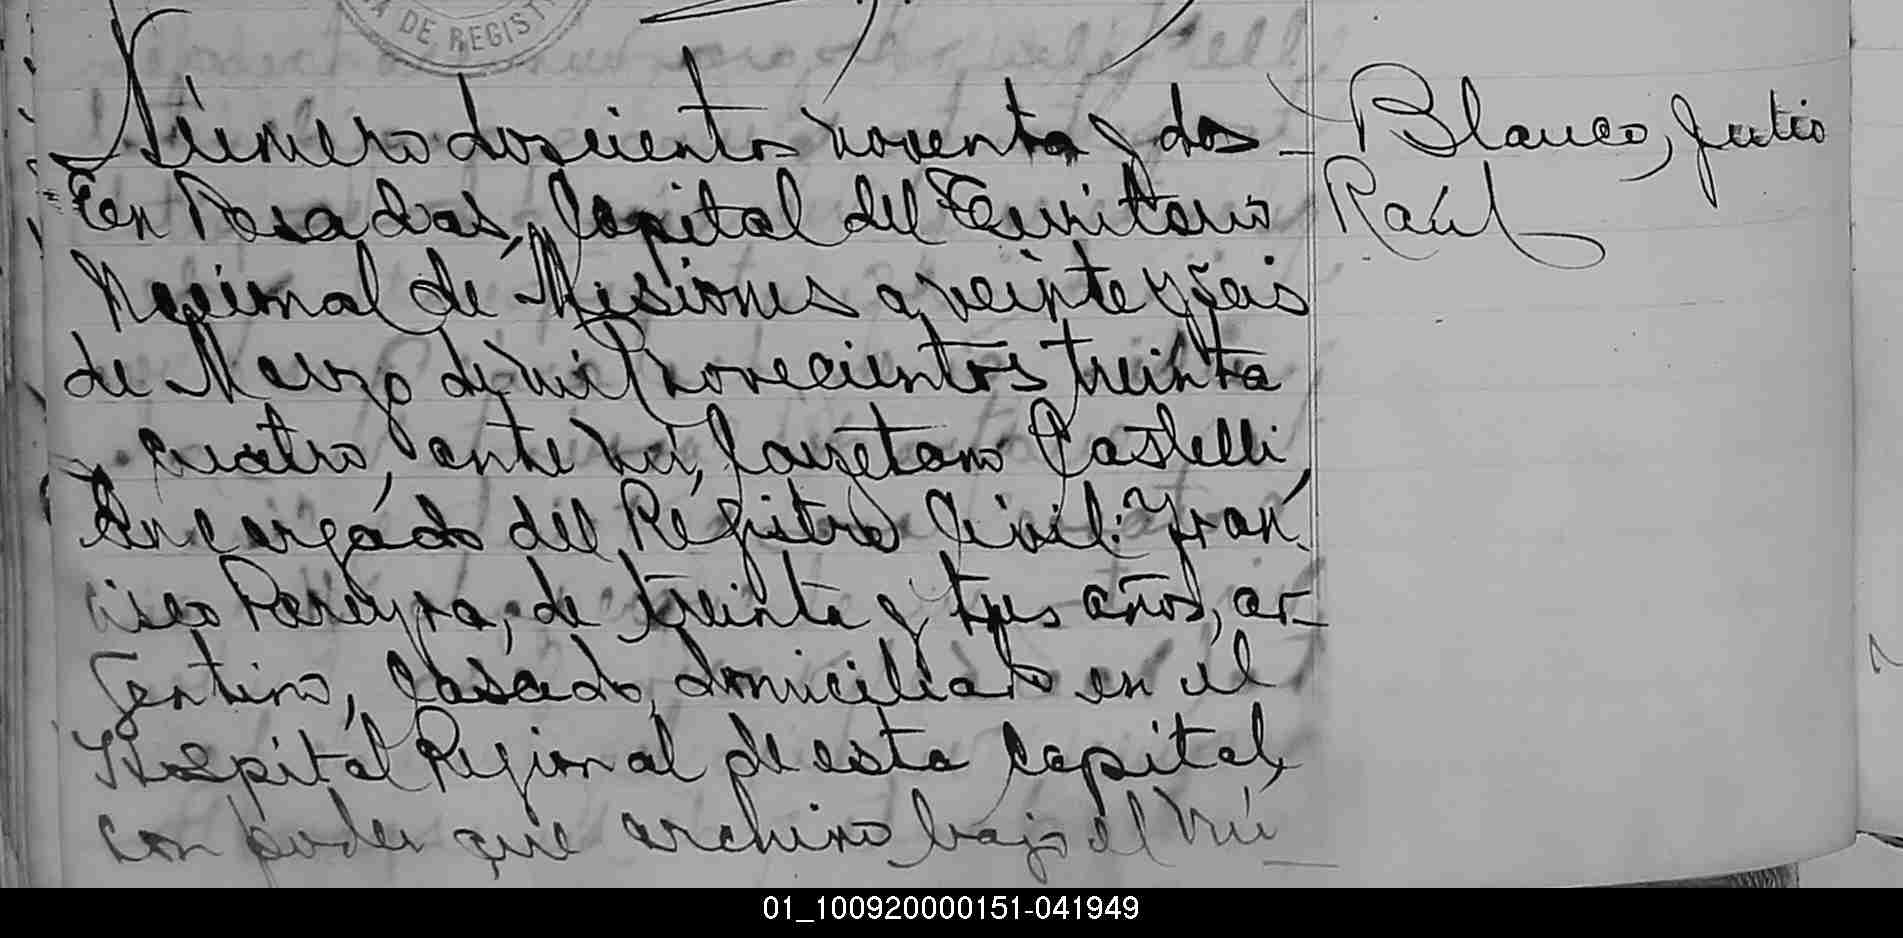 A DE REGIST
Número doscientos noventa y dos
En Posadas, Capital del Territorio
Nacional de Misiones a veinte y seis
de Marzo de mil novecientos treinta
y cuatro, ante mí, Cayetano Castelli,
Encargado del Registro Civil: Fran-
cisco Pereyra, de treinta y tres años, ar-
gentino, casado, domiciliado en el
Hospital Regional de esta Capital,
con poder que archivo bajo el nú
Blanco, Julio
Raúl
01_100920000151-041949